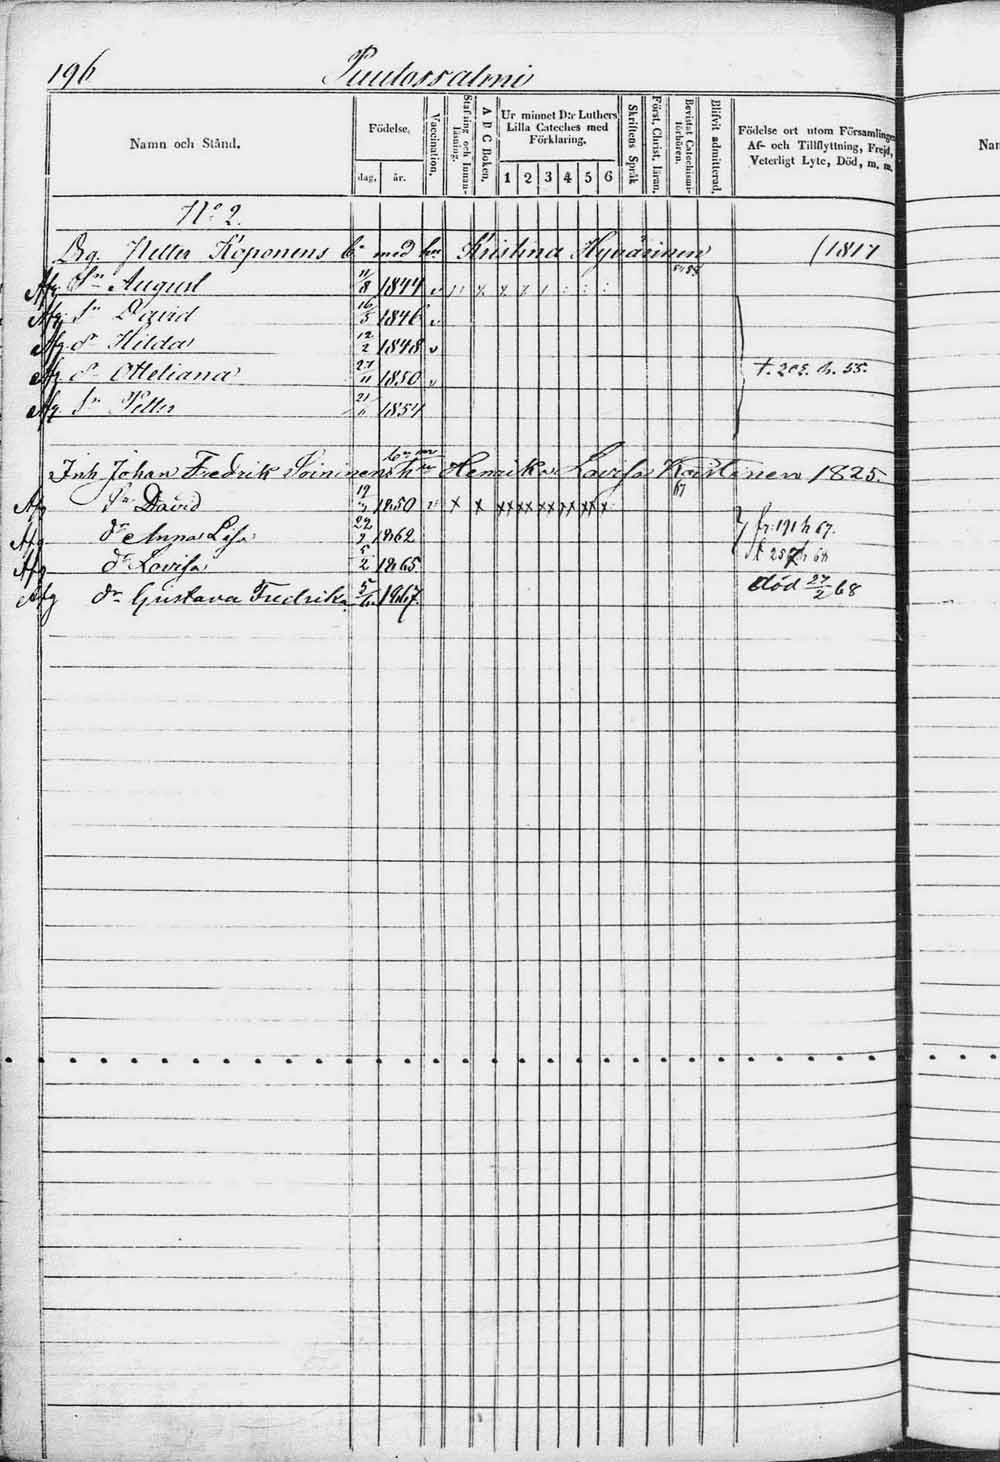 196 Puutossalmi
Namn och Stånd.
Födelse,
dag. år.
Vaccination.
Stafning och Innanläsning.
A B C Boken.
Ur minnet D:r Luthers Lilla Cateches med Förklaring.
1 2 3 4 5 6
Skriftens Språk
Först. Christ. läran.
Bevistat Catechismiförhören.
Blifvit admitterad.
Födelse ort utom Församlingen
Af- och Tillflyttning, Frejd,
Veterligt Lyte, Död, m. m.
Nam
No 2.
Petter Koponens med Kristina Hyvärinen 1817
Afg Sn August 11/8 1844 v
Afg Sn David 16/5 1846 v
Afg dr Hilda 12/2 1848 v
Afg dr Otteliana 27/11 1850 v t. 202. h. 55.
Afg Sn Petter 21/6 1854
Inh Johan Fredrik Soininens hu Henrika Lovisa Kastinen 1825.
67
Afg Sn David 1850 v x x xx xx xx xx xx x
Afg dr Anna Lisa 22/2 1862 fr. 191 h 67.
Afg dr Lovisa 5/2 1865 t 257 h 68
Afg dr Gustava Fredrika 5/6 1867. död 27/2 68